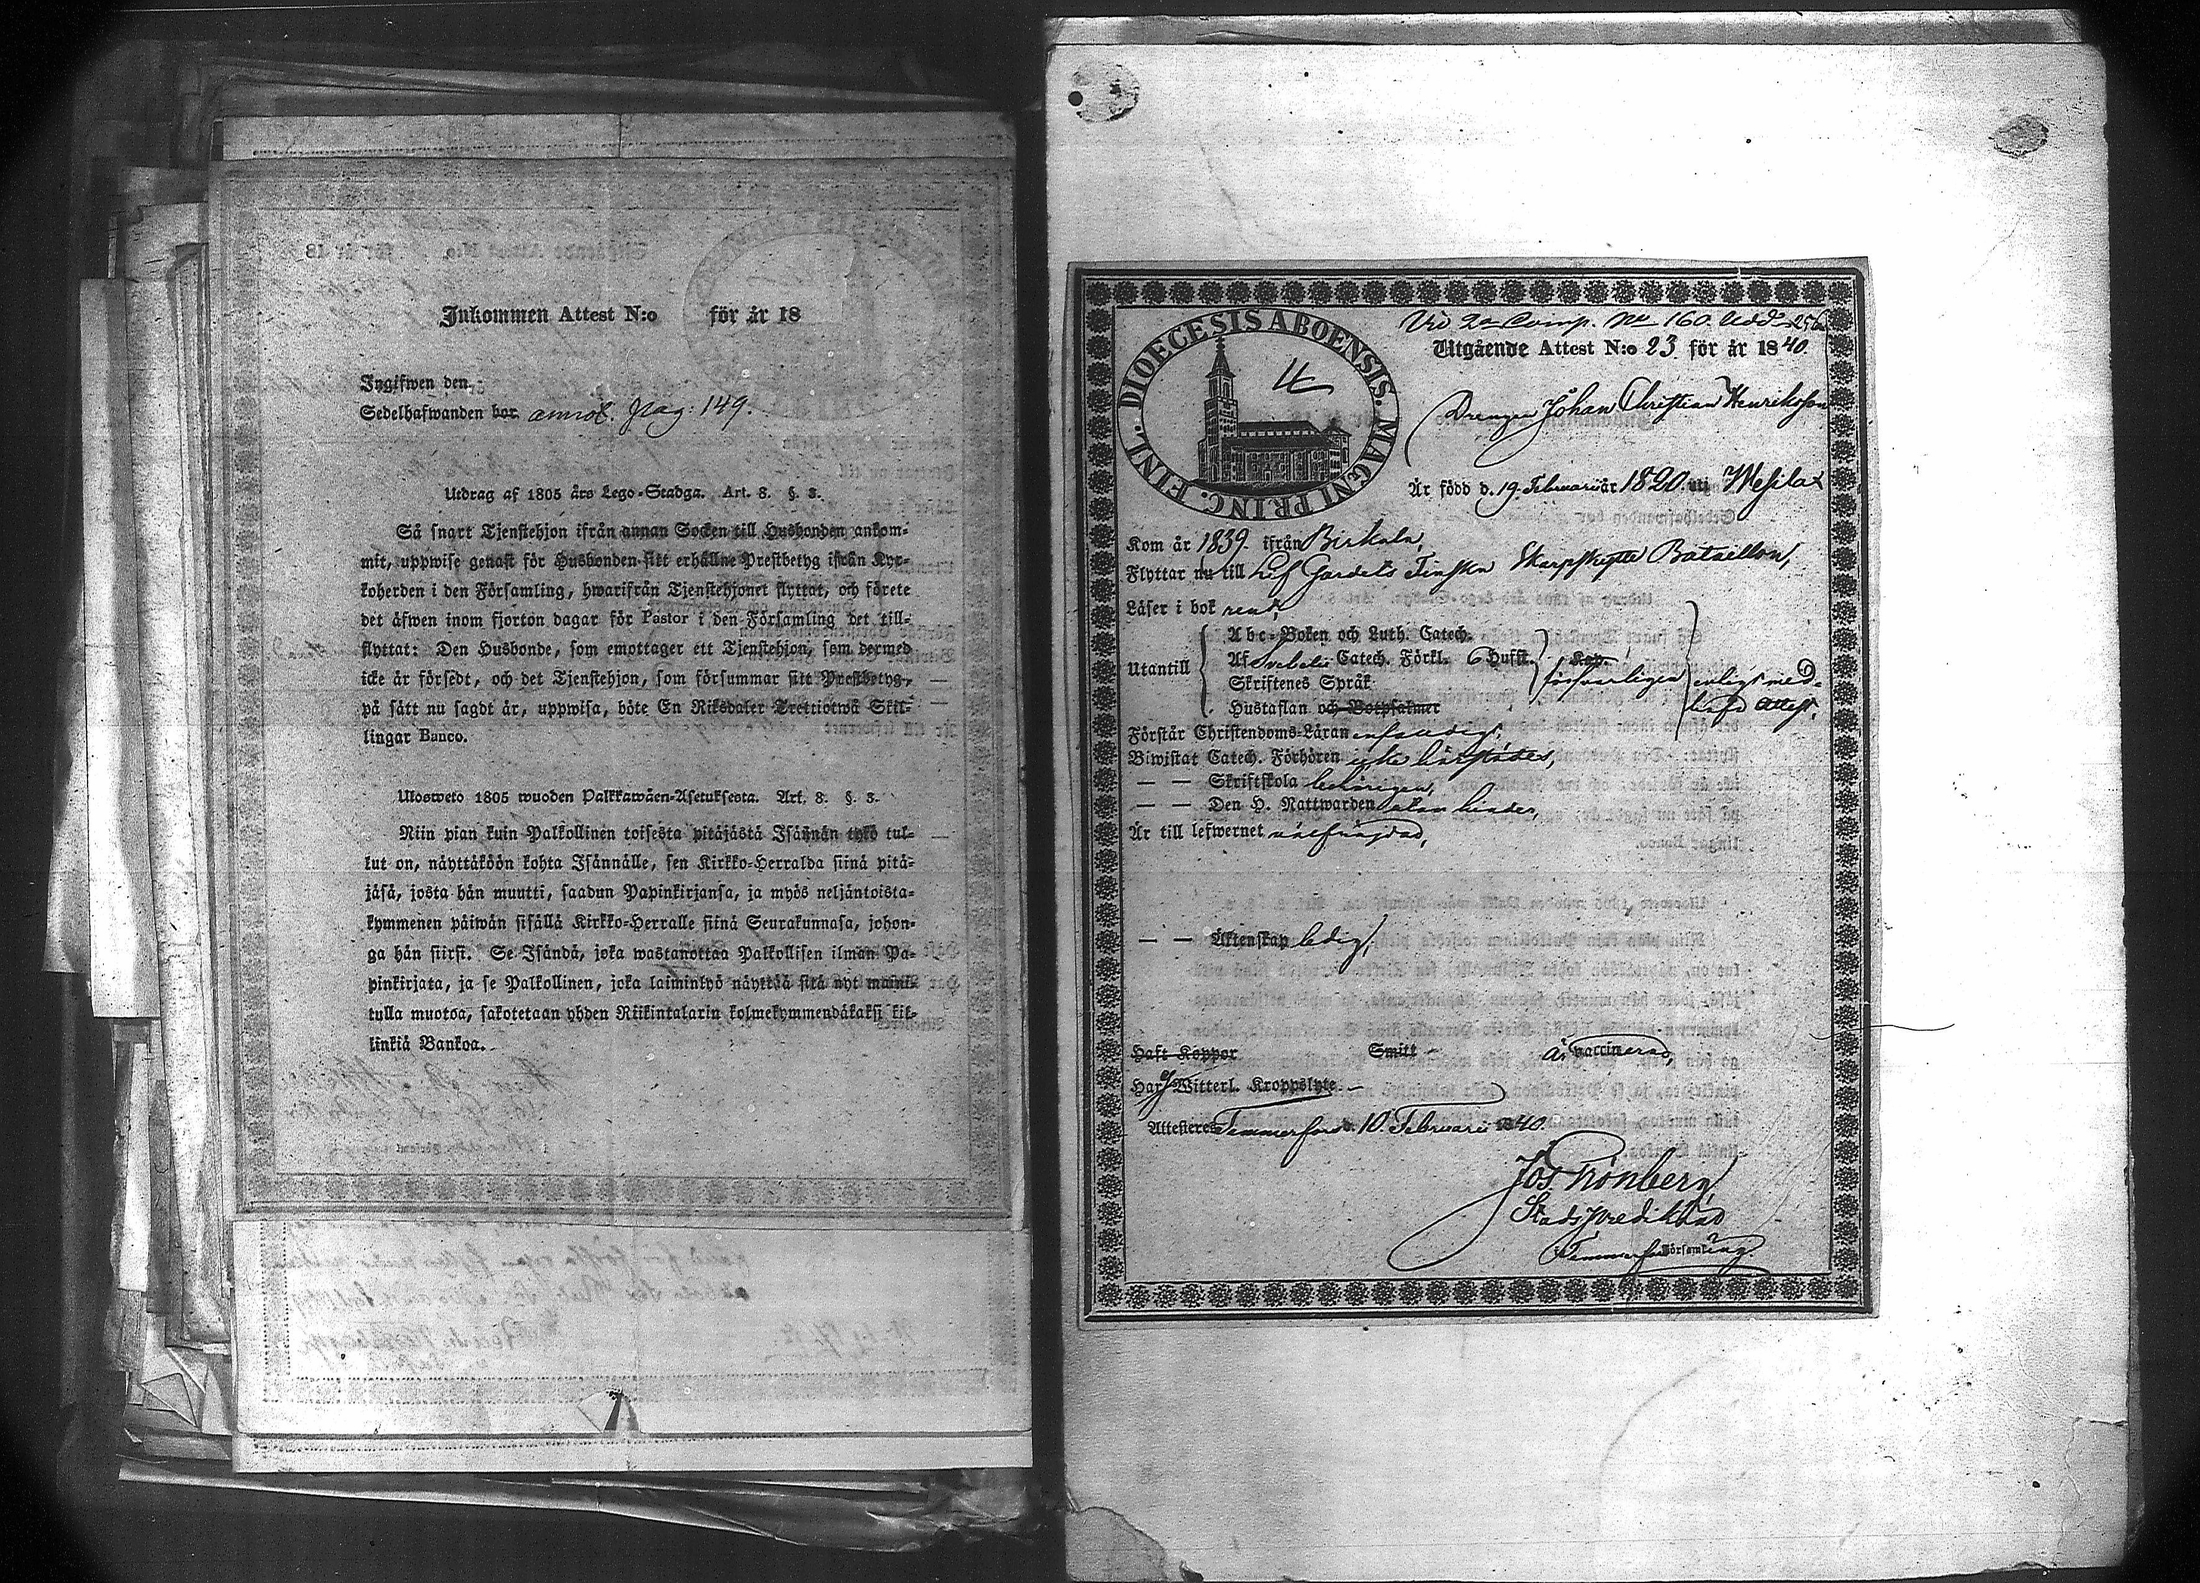 Inkommen Attest N:o för år 18
Ingifwen den
Sedelhafwanden bor annot. pag: 149.
Utdrag af 1805 års Lego-Stadga. Art. 3. §. 3.
Så snart Tjenstehjon ifrån annan Socken till Husbonden ankom-
mit, uppwise genast för Husbonden sitt erhållne Prestbetyg ifrån Kyr-
koherden i den Församling, hwarifrån Tjenstehjonet flyttat, och förete
det äfwen inom fjorton dagar för Pastor i den Församling det till-
flyttat: Den Husbonde, som emottager ett Tjenstehjon, som dermed
icke är försedt, och det Tjenstehjon, som försummar sitt Prestbetyg,
på sätt nu sagdt är, uppwisa, böte En Riksdaler Trettiotwå Skil-
lingar Banco.
Ulosweto 1805 wuoden Palkkawäen-Asetuksesta. Art. 3. §. 3.
Niin pian kuin Palkollinen toisesta pitäjästä Isännän tykö tul-
lut on, näyttäköön kohta Isännälle, sen Kirkko-Herralda siinä pitä-
jäsä, josta hän muutti, saadun Papinkirjansa, ja myös neljäntoista-
kymmenen päiwän sisällä Kirkko-Herralle siinä Seurakunnasa, johon-
ga hän siirsi. Se Isändä, joka wastanottaa Palkollisen ilman Pa-
pinkirjata, ja se Palkollinen, joka laiminlyö näyttää sitä nyt mainit-
tulla muotoa, sakotetaan yhden Riikintalarin kolmekymmendäkaksi kil-
linkiä Bankoa.
DIOECESIS ABOENSIS. MAGNI PRINC. FINL.
Vid 2a Comp. No 160. Udd 256
Utgående Attest N:o 23 för år 1840.
Drengen Johan Christian Henriksson
Är född d. 19. Februari år 1820. uti Wesilax
Kom år 1839. ifrån Birkala,
Flyttar nu till Lif Gardets Finska Skarpskytte Bataillon,
Läser i bok rent,
Utantill
Abc-Boken och Luth. Catech.
Af Svebelii Catech. Förkl. 6 Hufst. Kap.
Skriftenes Språk
försvarligen enligt med-
Hustaflan och Botpsalmer
hafd Attest,
Förstår Christendoms-Läran enfaldigt,
Biwistat Catech. Förhören icke härstädes,
— — Skriftskola behörigen,
— — Den H. Nattwarden utan hinder,
Är till lefwernet wälfrägdad,
— — Äktenskap ledig,
Haft Koppor Smitt är vaccinerad,
Har ej Witterl. Kroppslyte. —
Attesteres Tammerfors d. 10. Februari 1840.
Jos. Grönberg,
Stadspredikant
i Tammerfors Församling.